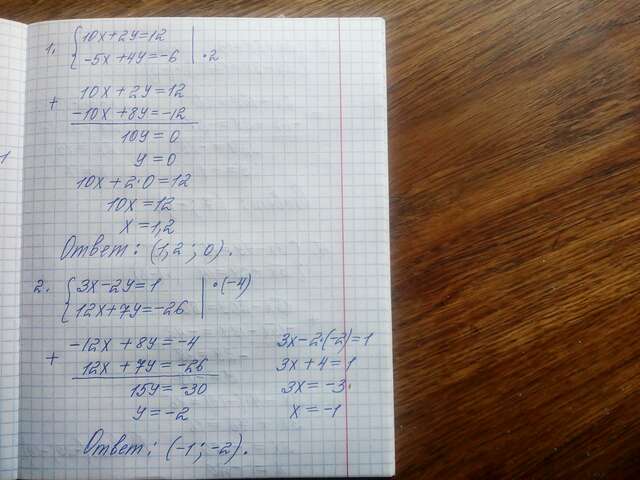 1. { 10x+2y=12
-5x+4y=-6 | •2
+ 10x+2y=12
-10x+8y=-12
10y=0
y=0
10x+2•0=12
10x=12
x=1,2
Ответ: (1,2; 0).
2. { 3x-2y=1 | •(-4)
12x+7y=-26
+ -12x+8y=-4
12x+7y=-26
15y=-30
y=-2
3x-2•(-2)=1
3x+4=1
3x=-3
x=-1
Ответ: (-1; -2).